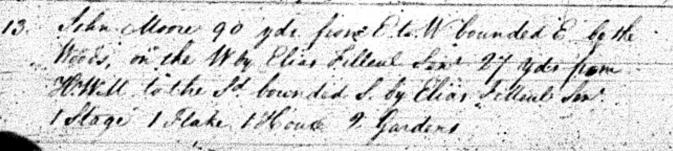 13. John Moore 90 yds from E to W bounded E be the
Woods, on the W by Elias Filleul Senr 27 yds from
H.W.M to the Sd bounded S. by Elias Filleul Senr
1 Stage 1 Flake 1 House 2 Gardens